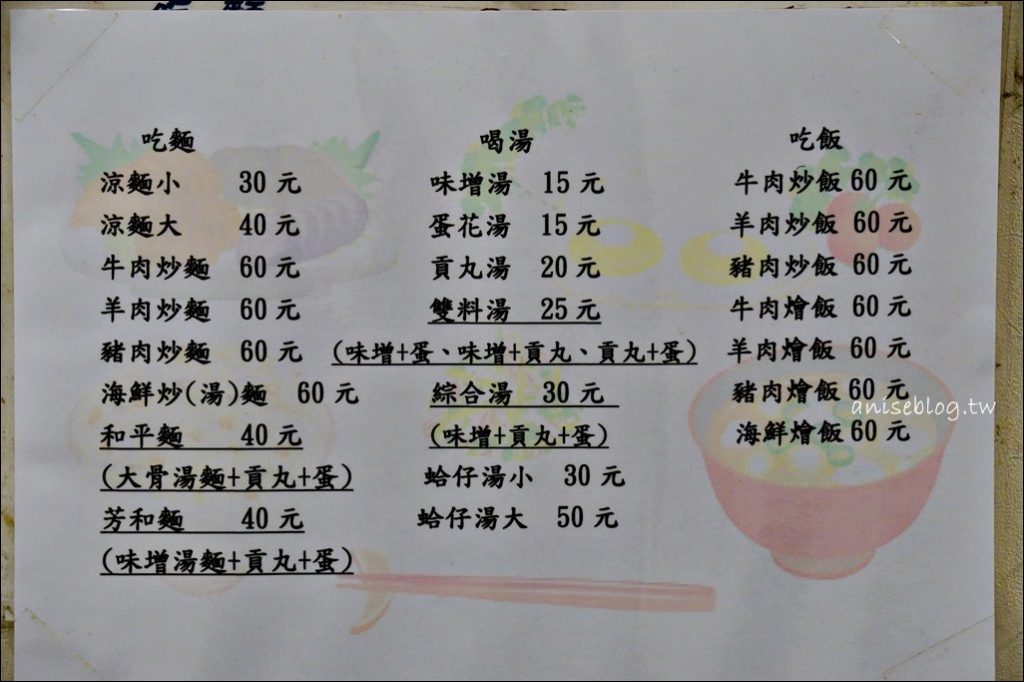 吃麵
涼麵小 30元
涼麵大 40元
牛肉炒麵 60元
羊肉炒麵 60元
豬肉炒麵 60元
海鮮炒(湯)麵 60元
和平麵 40元
(大骨湯麵+貢丸+蛋)
芳和麵 40元
(味增湯麵+貢丸+蛋)
喝湯
味增湯 15元
蛋花湯 15元
貢丸湯 20元
雙料湯 25元
(味增+蛋、味增+貢丸、貢丸+蛋)
綜合湯 30元
(味增+貢丸+蛋)
蛤仔湯小 30元
蛤仔湯大 50元
吃飯
牛肉炒飯60元
羊肉炒飯60元
豬肉炒飯60元
牛肉燴飯60元
羊肉燴飯60元
豬肉燴飯60元
海鮮燴飯60元
aniseblog.tw